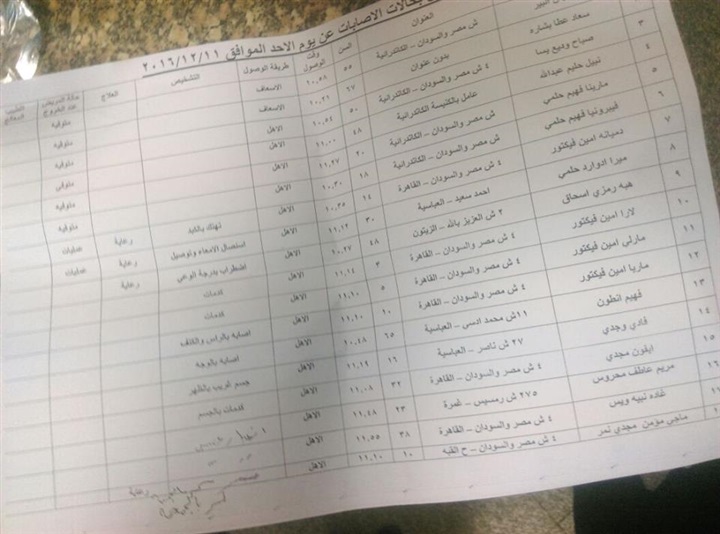 بحالات الاصابات عن يوم الاحد الموافق ٢٠١٦/١٢/١١
العنوان السن وقت الوصول طريقة الوصول التشخيص العلاج حالة المريض عند الخروج الطبيب المعالج
٣ سعاد عطا بشاره ش مصر والسودان – الكاتدرائية ٥٥ ١٠,٥٤ الاسعاف متوفيه
٤ صباح وديع يسا بدون عنوان ٦٧ الاسعاف متوفيه
نبيل حليم عبدالله ٤ ش مصر والسودان – الكاتدرائية ٥٠ ١٠,٥٤ الاهل متوفى
٥ مارينا فهيم حلمي عامل بالكنيسة الكاتدرائية ٤٨ الاهل متوفيه
٦ فيرونيا فهيم حلمي ش مصر والسودان – الكاتدرائية ٢٠ ١١,٢٧ الاهل متوفيه
٧ دميانه امين فيكتور ش مصر والسودان – الكاتدرائية ١٨ ١٠,٣٠ الاهل
٨ ميرا ادوارد حلمي ٤ ش مصر والسودان – القاهرة ١٤ ١٠,٣٥ الاهل تهتك بالكبد رعاية عمليات
٩ هبه رمزي اسحاق احمد سعيد – العباسية ٣٠ ١١,١٢ الاهل استئصال الامعاء وتوصيل رعاية عمليات
١٠ لارا امين فيكتور ٢ ش العزيز بالله – الزيتون ٤٨ الاهل اضطراب بدرجة الوعي رعاية
١١ مارلي امين فيكتور ٤ ش مصر والسودان – القاهرة ٣ ١١,١٤ الاهل كدمات
١٢ ماريا امين فيكتور ٤ ش مصر والسودان – القاهرة ٥ ١١,١٠ الاهل كدمات
١٣ فهيم انطون ٤ ش مصر والسودان – القاهرة ١٠ الاهل اصابه بالراس والكتف
١٤ فادي وجدي ١١ ش محمد – العباسية ٦٥ ١٠,٤٨ الاهل اصابه بالوجه
١٥ ايفون مجدي ٢٧ ش ناصر – العباسية ١٦ ١١,١٩ الاهل جسم غريب بالظهر
١٦ مريم عاطف محروس ٤ ش مصر والسودان – القاهرة ٣٢ ١١,٠٨ الاهل كدمات بالجسم
غاده نبيه ويس ٢٧٥ ش رمسيس – غمرة ٢٣ ١١,٤٨ الاهل
ماجي مؤمن مجدي نمر ٤ ش مصر والسودان – القاهرة ٣٨ ١١,٥٥ الاهل
٤ ش مصر والسودان – ح القبه ١٠ ١١,١٠ الاهل رعاية